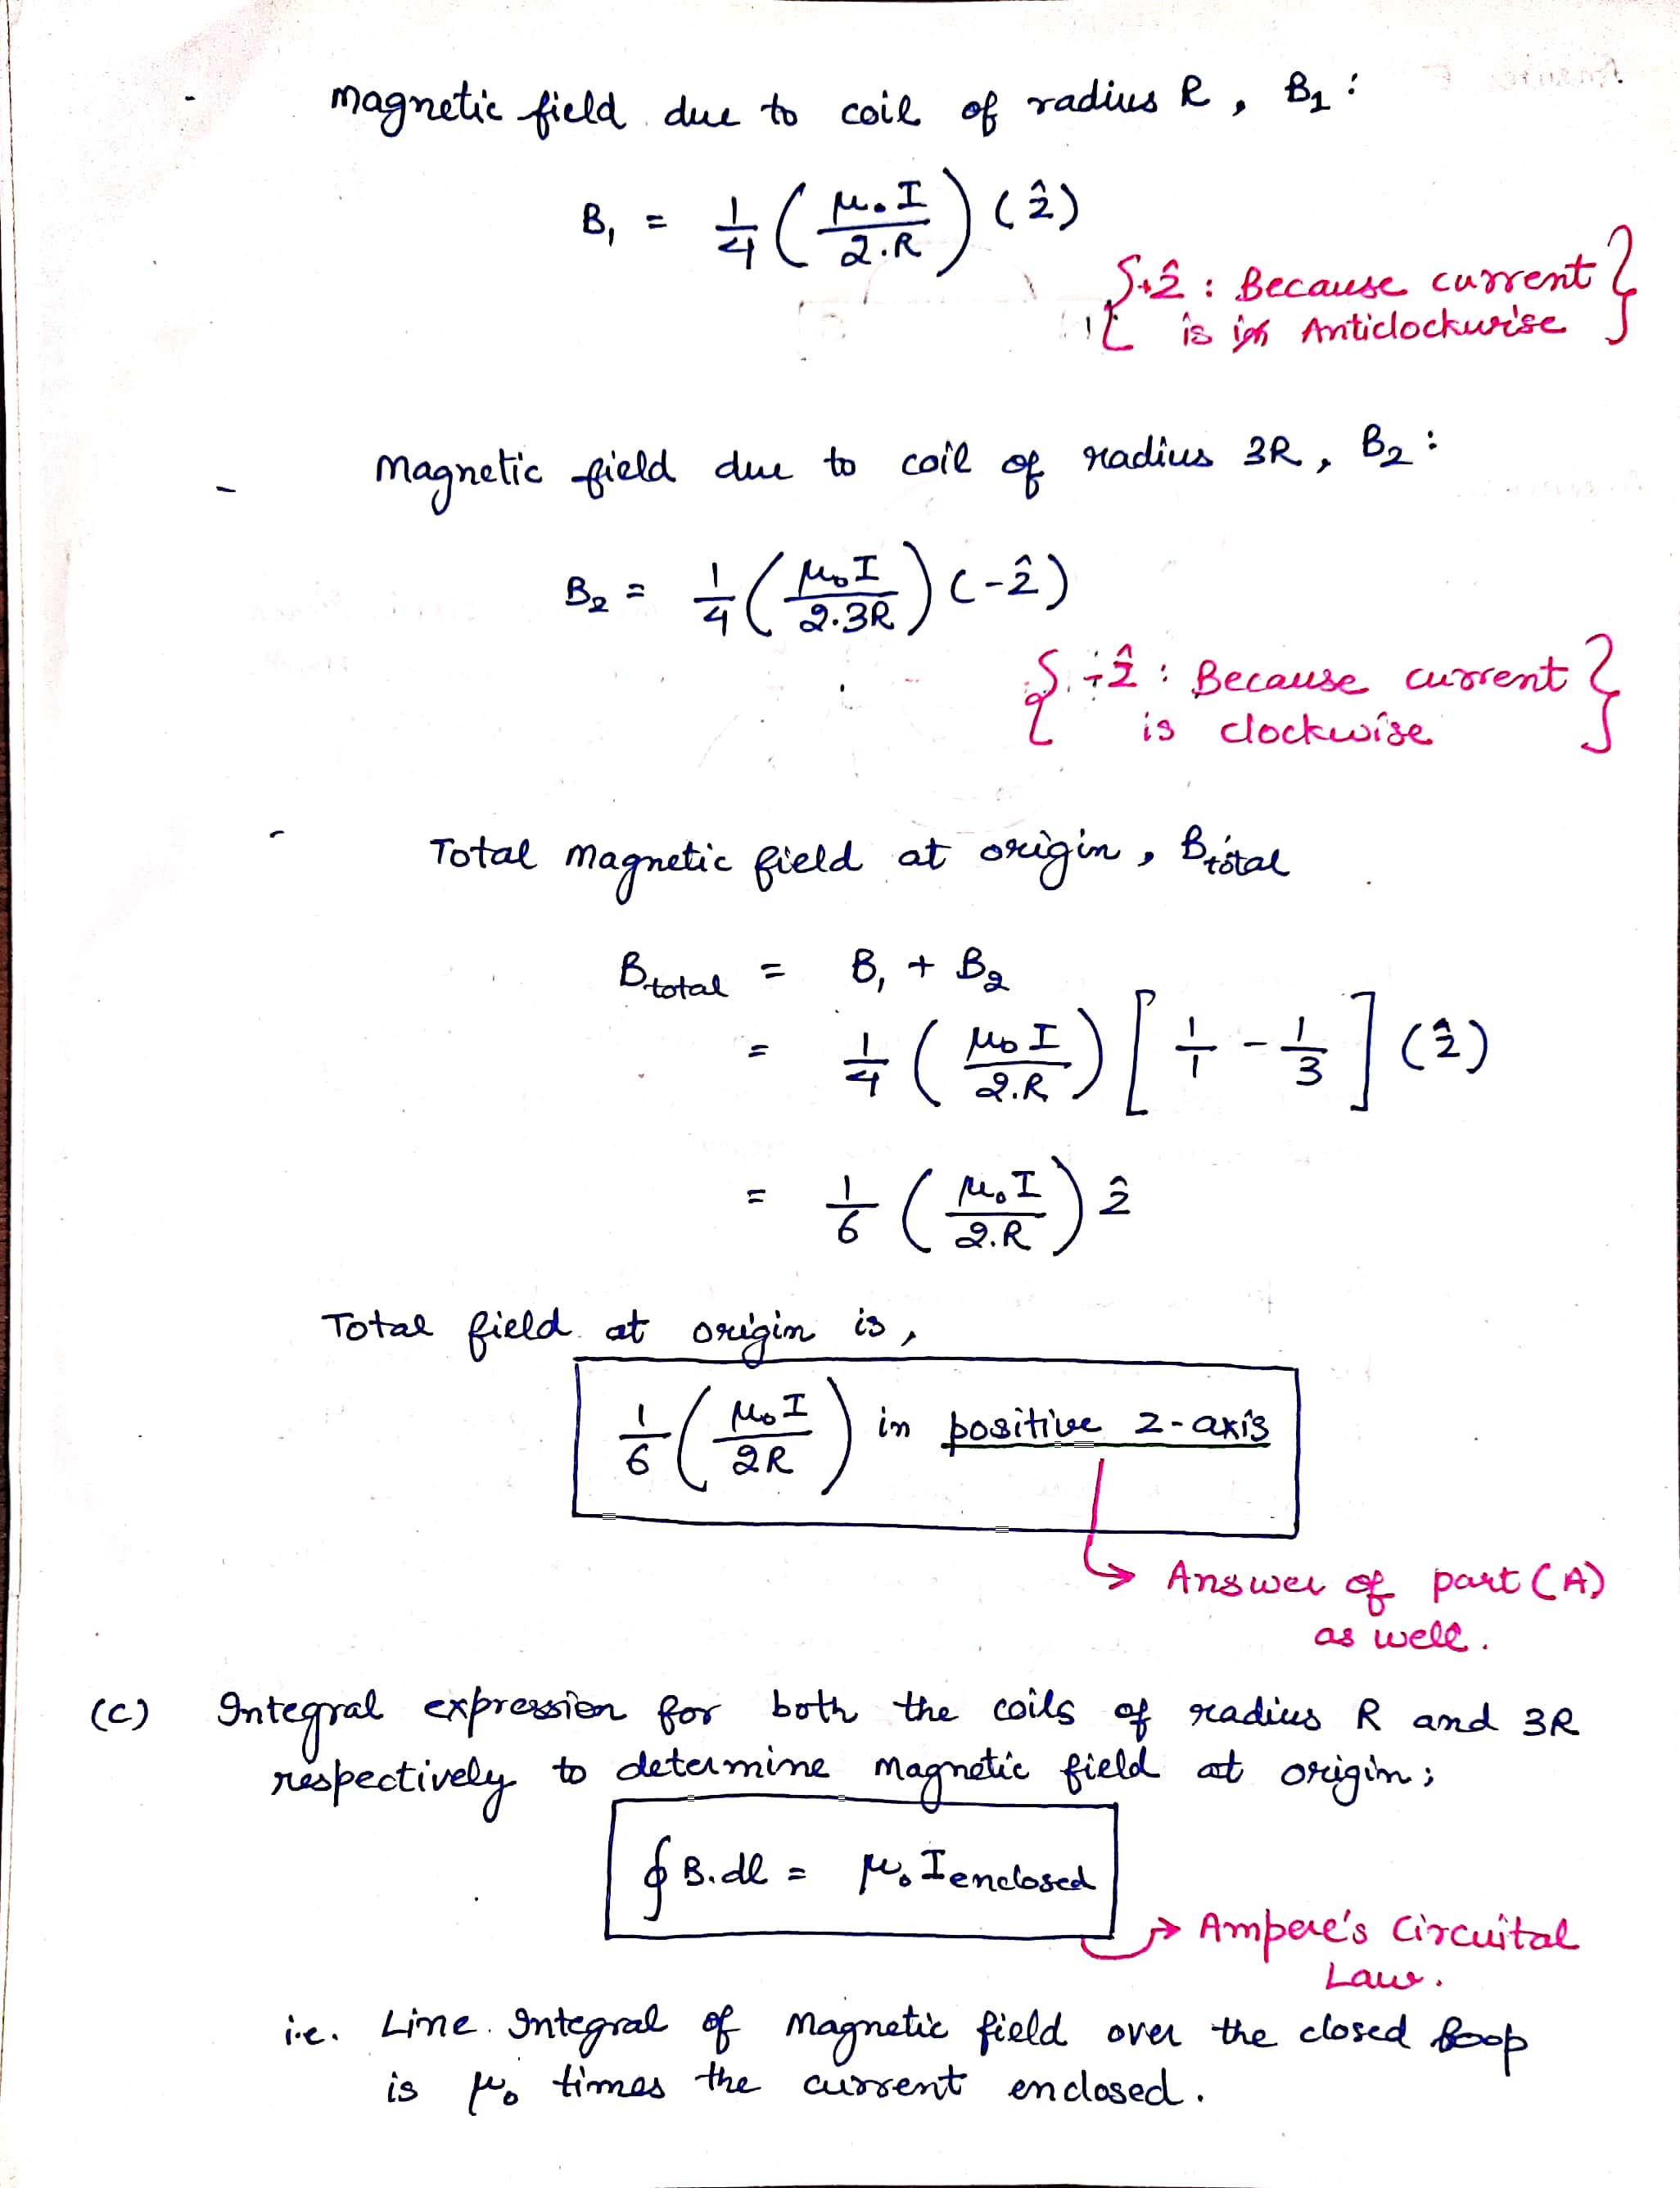 - magnetic field due to coil of radius R, B₁ :
B₁ = 1/4 (μ₀I / 2.R) (ẑ)
{ +ẑ : Because current
is Anticlockwise }
- Magnetic field due to coil of radius 3R, B₂ :
B₂ = 1/4 (μ₀I / 2.3R) (-ẑ)
{ -ẑ : Because current
is clockwise }
- Total magnetic field at origin, Btotal
Btotal = B₁ + B₂
= 1/4 (μ₀I / 2.R) [1/1 - 1/3] (ẑ)
= 1/6 (μ₀I / 2.R) ẑ
Total field at origin is,
1/6 (μ₀I / 2R) in positive z-axis
→ Answer of part (A)
as well.
(C) Integral expression for both the coils of radius R and 3R
respectively to determine magnetic field at origin;
∮ B.dl = μ₀ Ienclosed
→ Ampere's Circuital
Law.
i.e. Line Integral of magnetic field over the closed loop
is μ₀ times the current enclosed.